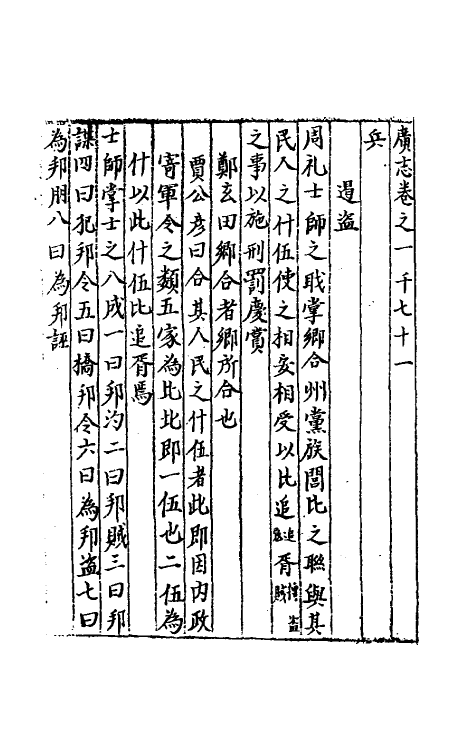 廣志卷之一千七十一
兵
遏盜
周礼士師之职掌鄉合州黨族閭比之聯與其
民人之什伍使之相安相受以比追追寇胥搏盜賊
之事以施刑罰慶賞
鄭玄曰鄉合者鄉所合也
賈公彥曰合其人民之什伍者此即因内政
寄軍令之類五家為比比即一伍也二伍為
什以此什伍比追胥焉
士師掌士之八成一曰邦汋二曰邦賊三曰邦
諜四曰犯邦令五曰撟邦令六曰為邦盜七曰
為邦朋八曰為邦誣